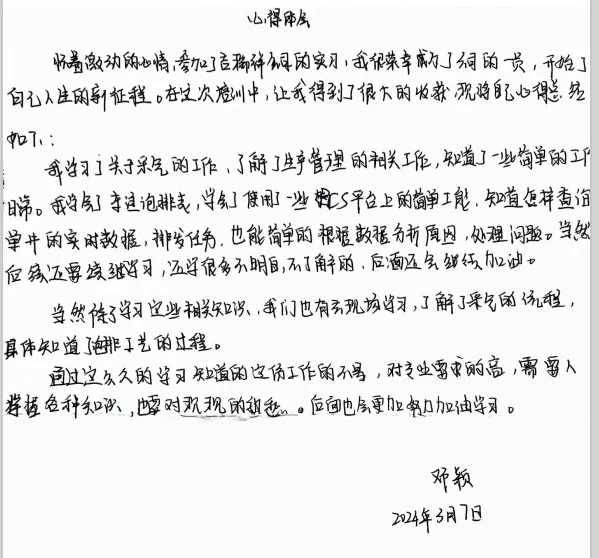 心得体会
怀着激动的心情,参加了吉瑞祥公司的实习,我很荣幸成为了公司的一员,开始了
自己人生的新征程。在这次培训中,让我得到了很大的收获,现将自己心得总结
如下:
我学习了关于采气的工作,了解了生产管理的相关工作,知道了一些简单的工作
日常。我学会了泡排,学会了使用了一些CS平台上的简单工能,知道怎样查询
单井的实时数据,排发任务,也能简单的根据数据分析原因,处理问题。当然
后续还要继续学习,还学很多不明白,不了解的,后面还会继续加油。
当然除了学习这些相关知识,我们也有去现场学习,了解了采气的流程,
具体知道了泡排工艺的过程。
通过这么久的学习知道的这份工作的不易,对专业需求的高,需要人
掌握各种知识,也要对观现的。后面也会更加努力加油学习。
邓颖
2024年3月7日